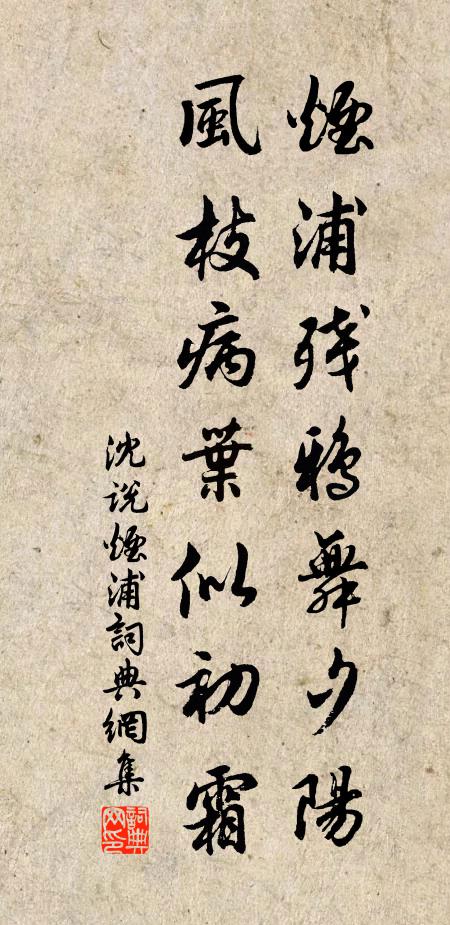 煙浦殘鴉舞夕陽
風枝病葉似初霜
沈說煙浦詞典網集
詞典網印